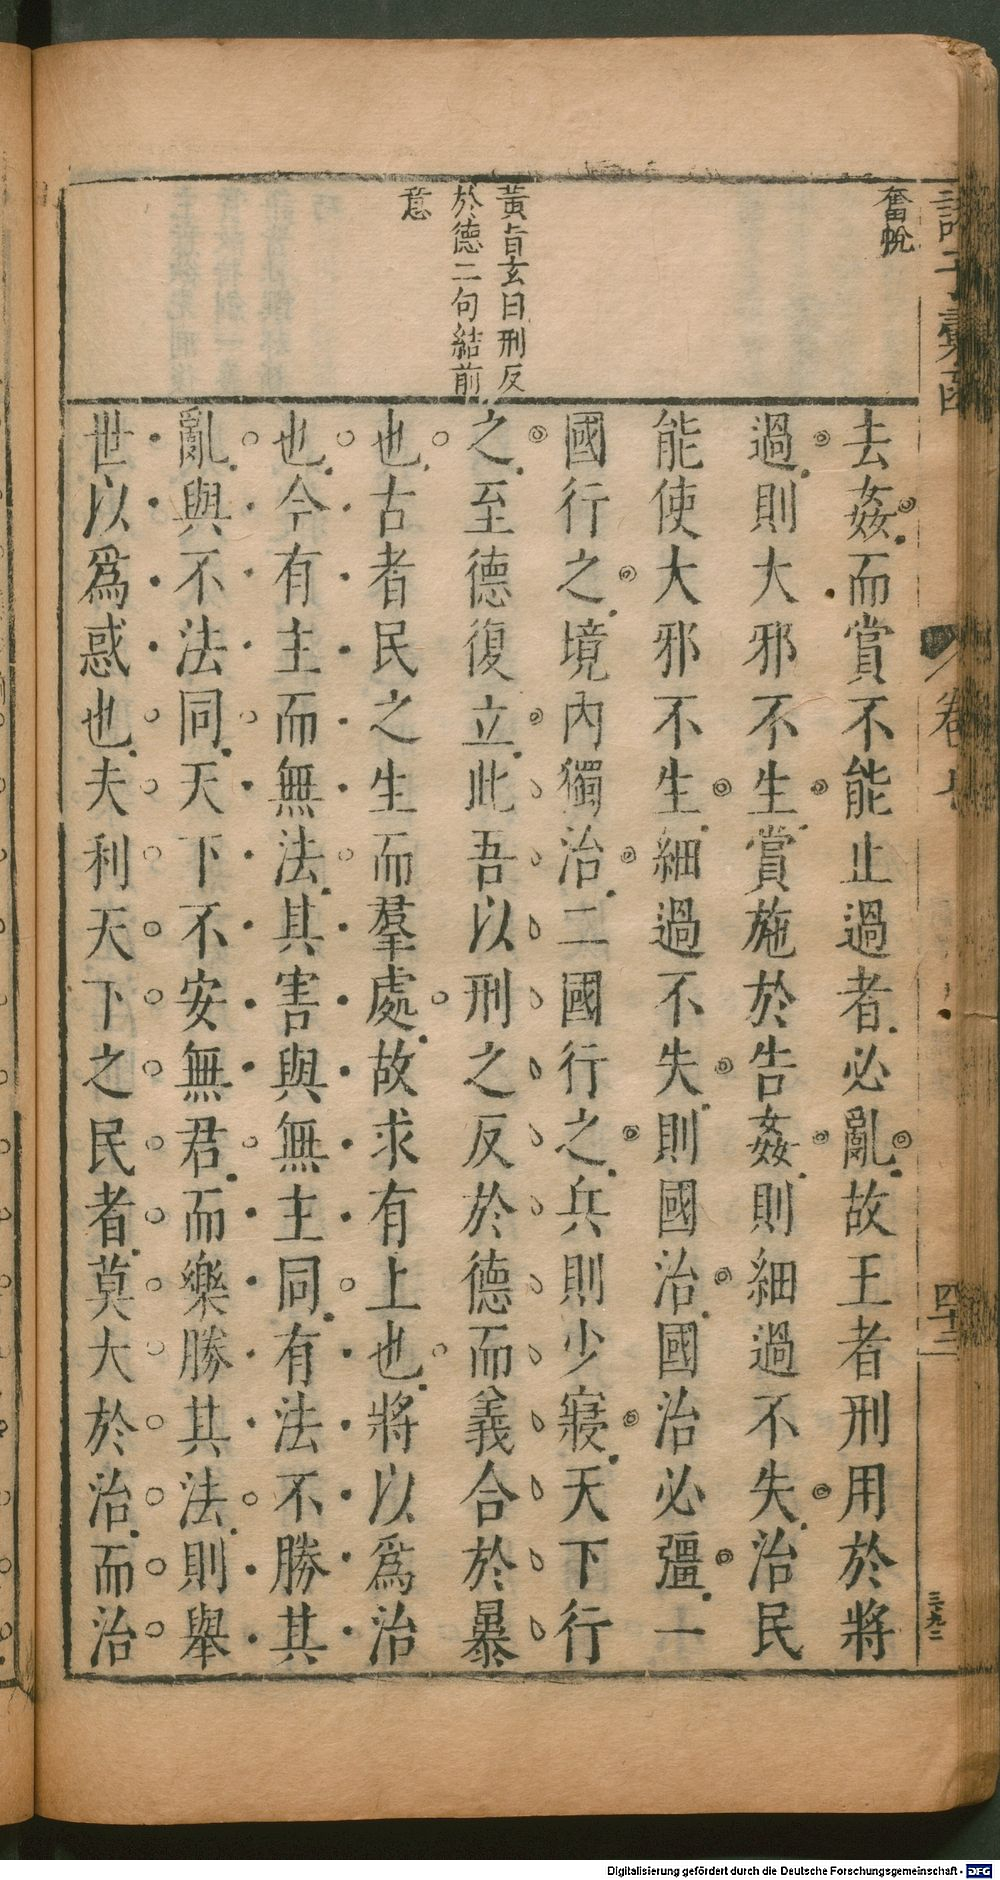 奮帨
黃貞玄曰刑反
於德二句結前
意
去姦而賞不能止過者必亂故王者刑用於將
過則大邪不生賞施於告姦則細過不失治民
能使大邪不生細過不失則國治國治必彊一
國行之境內獨治二國行之兵則少寢天下行
之至德復立此吾以刑之反於德而義合於暴
也古者民之生而羣處故求有上也將以爲治
也今有主而無法其害與無主同有法不勝其
亂與不法同天下不安無君而樂勝其法則舉
世以爲惑也夫利天下之民者莫大於治而治
卷七
四十三
三九二
Digitalisierung gefördert durch die Deutsche Forschungsgemeinschaft - DFG